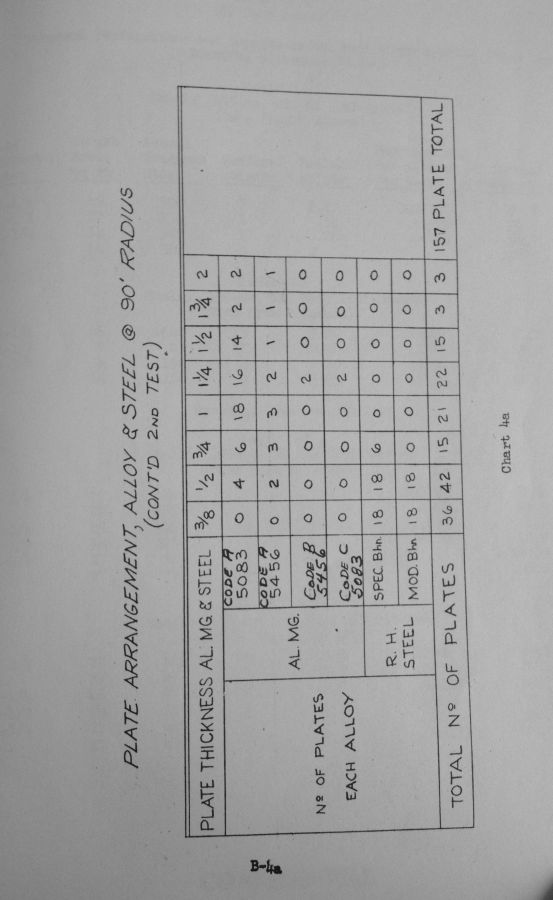 PLATE ARRANGEMENT, ALLOY & STEEL @ 90' RADIUS
(CONT'D 2ND TEST)
PLATE THICKNESS AL. MG. & STEEL 3/8 1/2 3/4 1 1 1/4 1 1/2 1 3/4 2
Nº OF PLATES EACH ALLOY
AL. MG.
CODE A 5083 0 4 6 18 16 14 2 2
CODE A 5456 0 2 3 3 2 1 1 1
CODE B 5456 0 0 0 0 2 0 0 0
CODE C 5083 0 0 0 0 2 0 0 0
R. H. STEEL
SPEC. Bhn 18 18 6 0 0 0 0 0
MOD. Bhn 18 18 0 0 0 0 0 0
TOTAL Nº OF PLATES 36 42 15 21 22 15 3 3 157 PLATE TOTAL
Chart 4a
B-4a